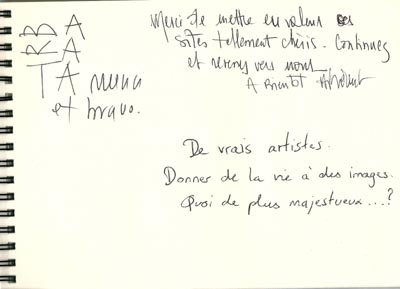 TRBA
AA
TA
et bravo.
Merci de mettre en valeur ces
sites tellement chéris. Continuez
et revenez vers nous
A Bientôt
De vrais artistes.
Donner de la vie à des images.
Quoi de plus majestueux...?